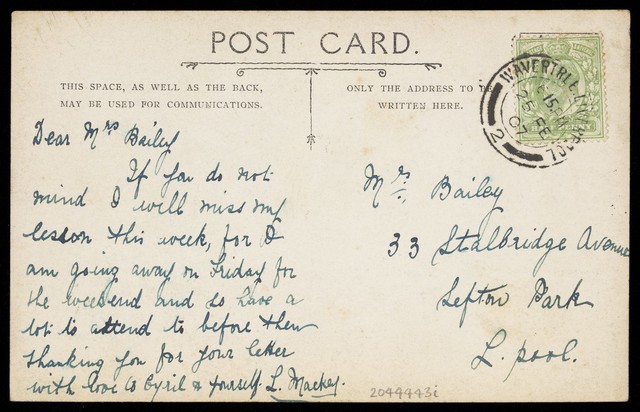 POST CARD.
THIS SPACE, AS WELL AS THE BACK,
MAY BE USED FOR COMMUNICATIONS.
ONLY THE ADDRESS TO BE
WRITTEN HERE.
WAVERTREE LIVERPOOL
6 15 PM
25 FE
07
2
Dear Mrs Bailey
If you do not
mind I will miss my
lesson this week, for I
am going away on Friday for
the weekend and so have a
lot to attend to before then
thanking you for your letter
with love to Cyril & yourself. L. Mackey.
Mrs. Bailey
33 Stalbridge Avenue
Sefton Park
L. pool.
2044443i